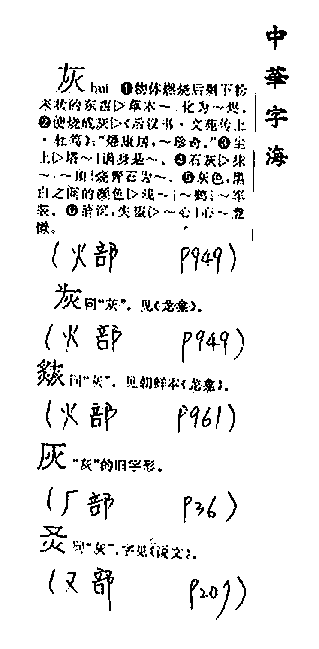 中華字海
灰 huī ❶物体燃烧后剩下粉
末状的东西▷草木~|化为~烬。
❷使烧成灰▷《后汉书·文苑传上
·杜笃》：“燔康居，~珍奇。”❸尘
土▷塔~|满身是~。❹石灰▷抹
~|~顶|烧野石为~。❺灰色，黑
白之间的颜色▷浅~|~鹤|~军
装。❻消沉，失望▷~心|心~意
懒。
（火部 P949）
灰 同“灰”。见《龙龛》。
（火部 P949）
同“灰”。见朝鲜本《龙龛》。
（火部 P961）
灰 “灰”的旧字形。
（厂部 P36）
同“灰”，字见《说文》。
（又部 P207）